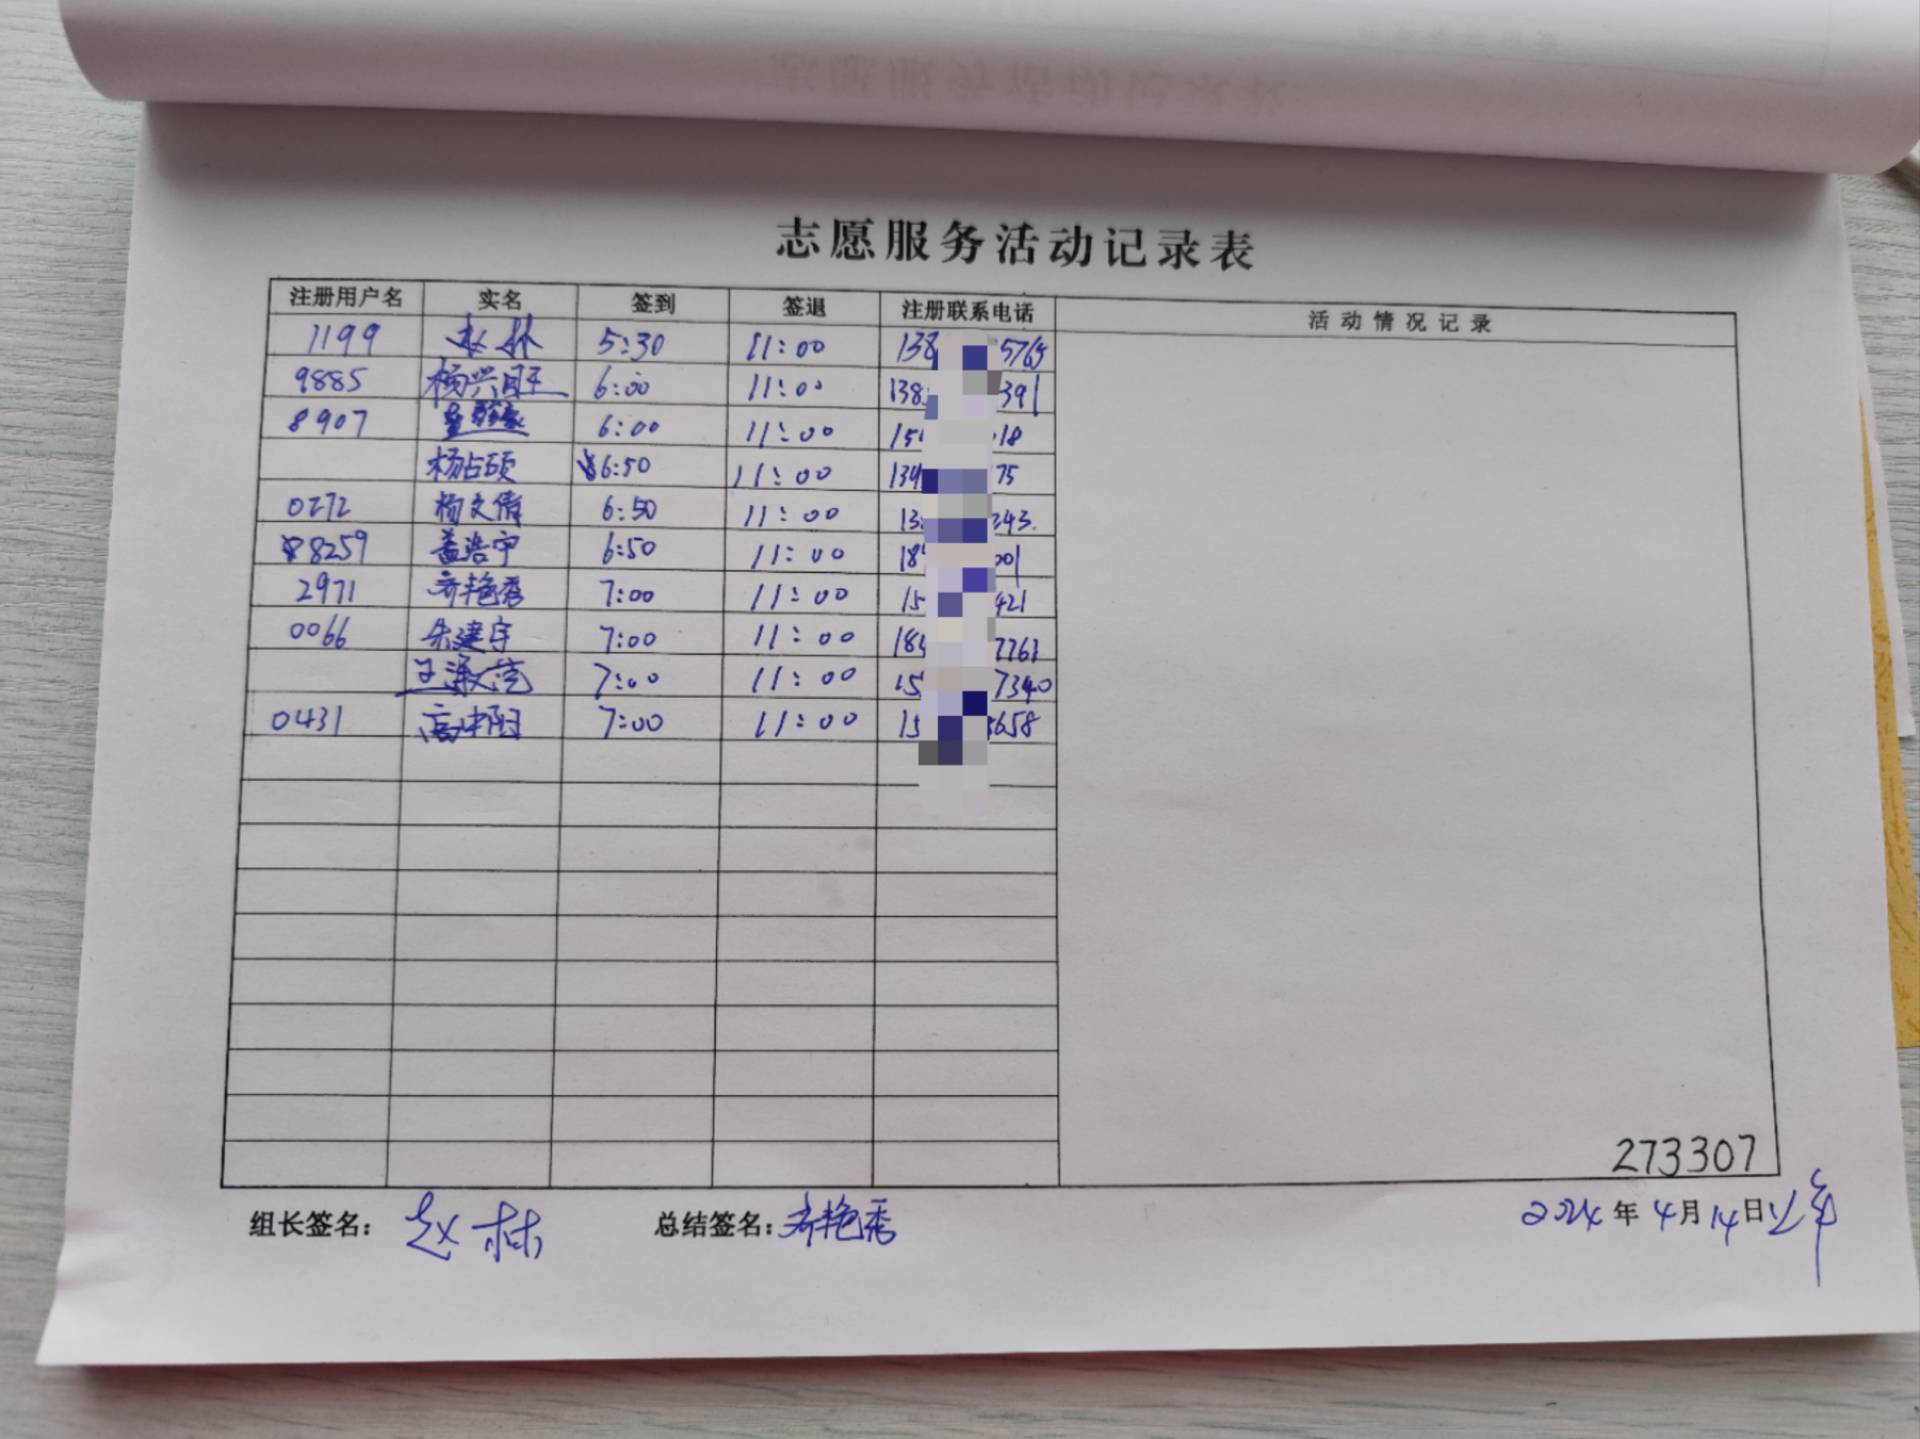 志愿服务活动记录表
注册用户名 实名 签到 签退 注册联系电话 活动情况记录
1199 赵林 5:30 11:00 138 5765
9885 杨兴旺 6:00 11:00 138 391
8907 6:00 11:00 15 18
杨占硕 6:50 11:00 139 75
0272 杨文倩 6:50 11:00 13 243
8259 孟浩宇 6:50 11:00 18 001
2971 齐艳秀 7:00 11:00 15 421
0066 朱建宇 7:00 11:00 18 7263
王淑 7:00 11:00 15 7340
0431 高 阳 7:00 11:00 15 5658
273307
组长签名: 赵林 总结签名: 齐艳秀 2024年4月14日上午